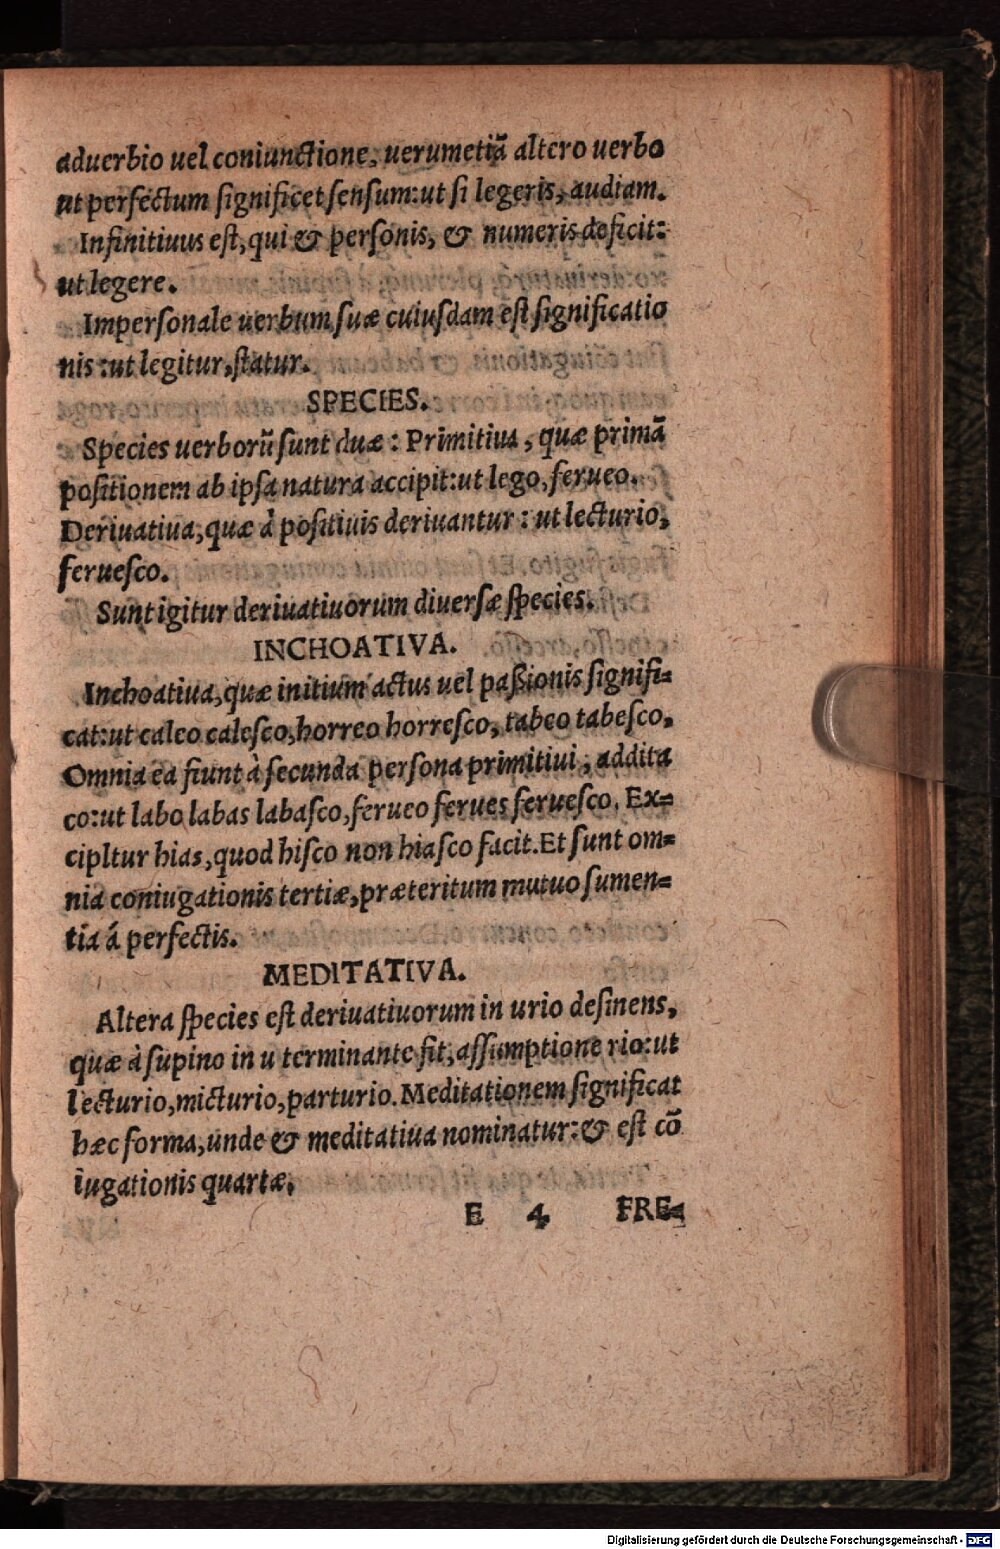 aduerbio uel coniunctione, uerumetiã altero uerbo
ut perfectum significet sensum:ut si legeris, audiam.
Infinitiuus est, qui & personis, & numeris deficit:
ut legere.
Impersonale uerbum suæ cuiusdam est significatio
nis :ut legitur, statur.
SPECIES.
Species uerborũ sunt duæ : Primitiua, quæ primã
positionem ab ipsa natura accipit:ut lego, ferueo.
Deriuatiua, quæ à positiuis deriuantur : ut lecturio,
feruesco.
Sunt igitur deriuatiuorum diuersæ species.
INCHOATIVA.
Inchoatiua, quæ initium actus uel paßionis signifi=
cat:ut caleo calesco, horreo horresco, tabeo tabesco.
Omnia ea fiunt à secunda persona primitiui, addita
co:ut labo labas labasco, ferueo ferues feruesco. Ex=
cipltur hias, quod hisco non hiasco facit. Et sunt om=
nia coniugationis tertiæ, præteritum mutuo sumen=
tia á perfectis.
MEDITATIVA.
Altera species est deriuatiuorum in urio desinens,
quæ à supino in u terminante fit, assumptione rio:ut
lecturio, micturio, parturio. Meditationem significat
hæc forma, unde & meditatiua nominatur: & est cõ
iugationis quartæ.
E 4 FRE=
Digitalisierung gefördert durch die Deutsche Forschungsgemeinschaft - DFG